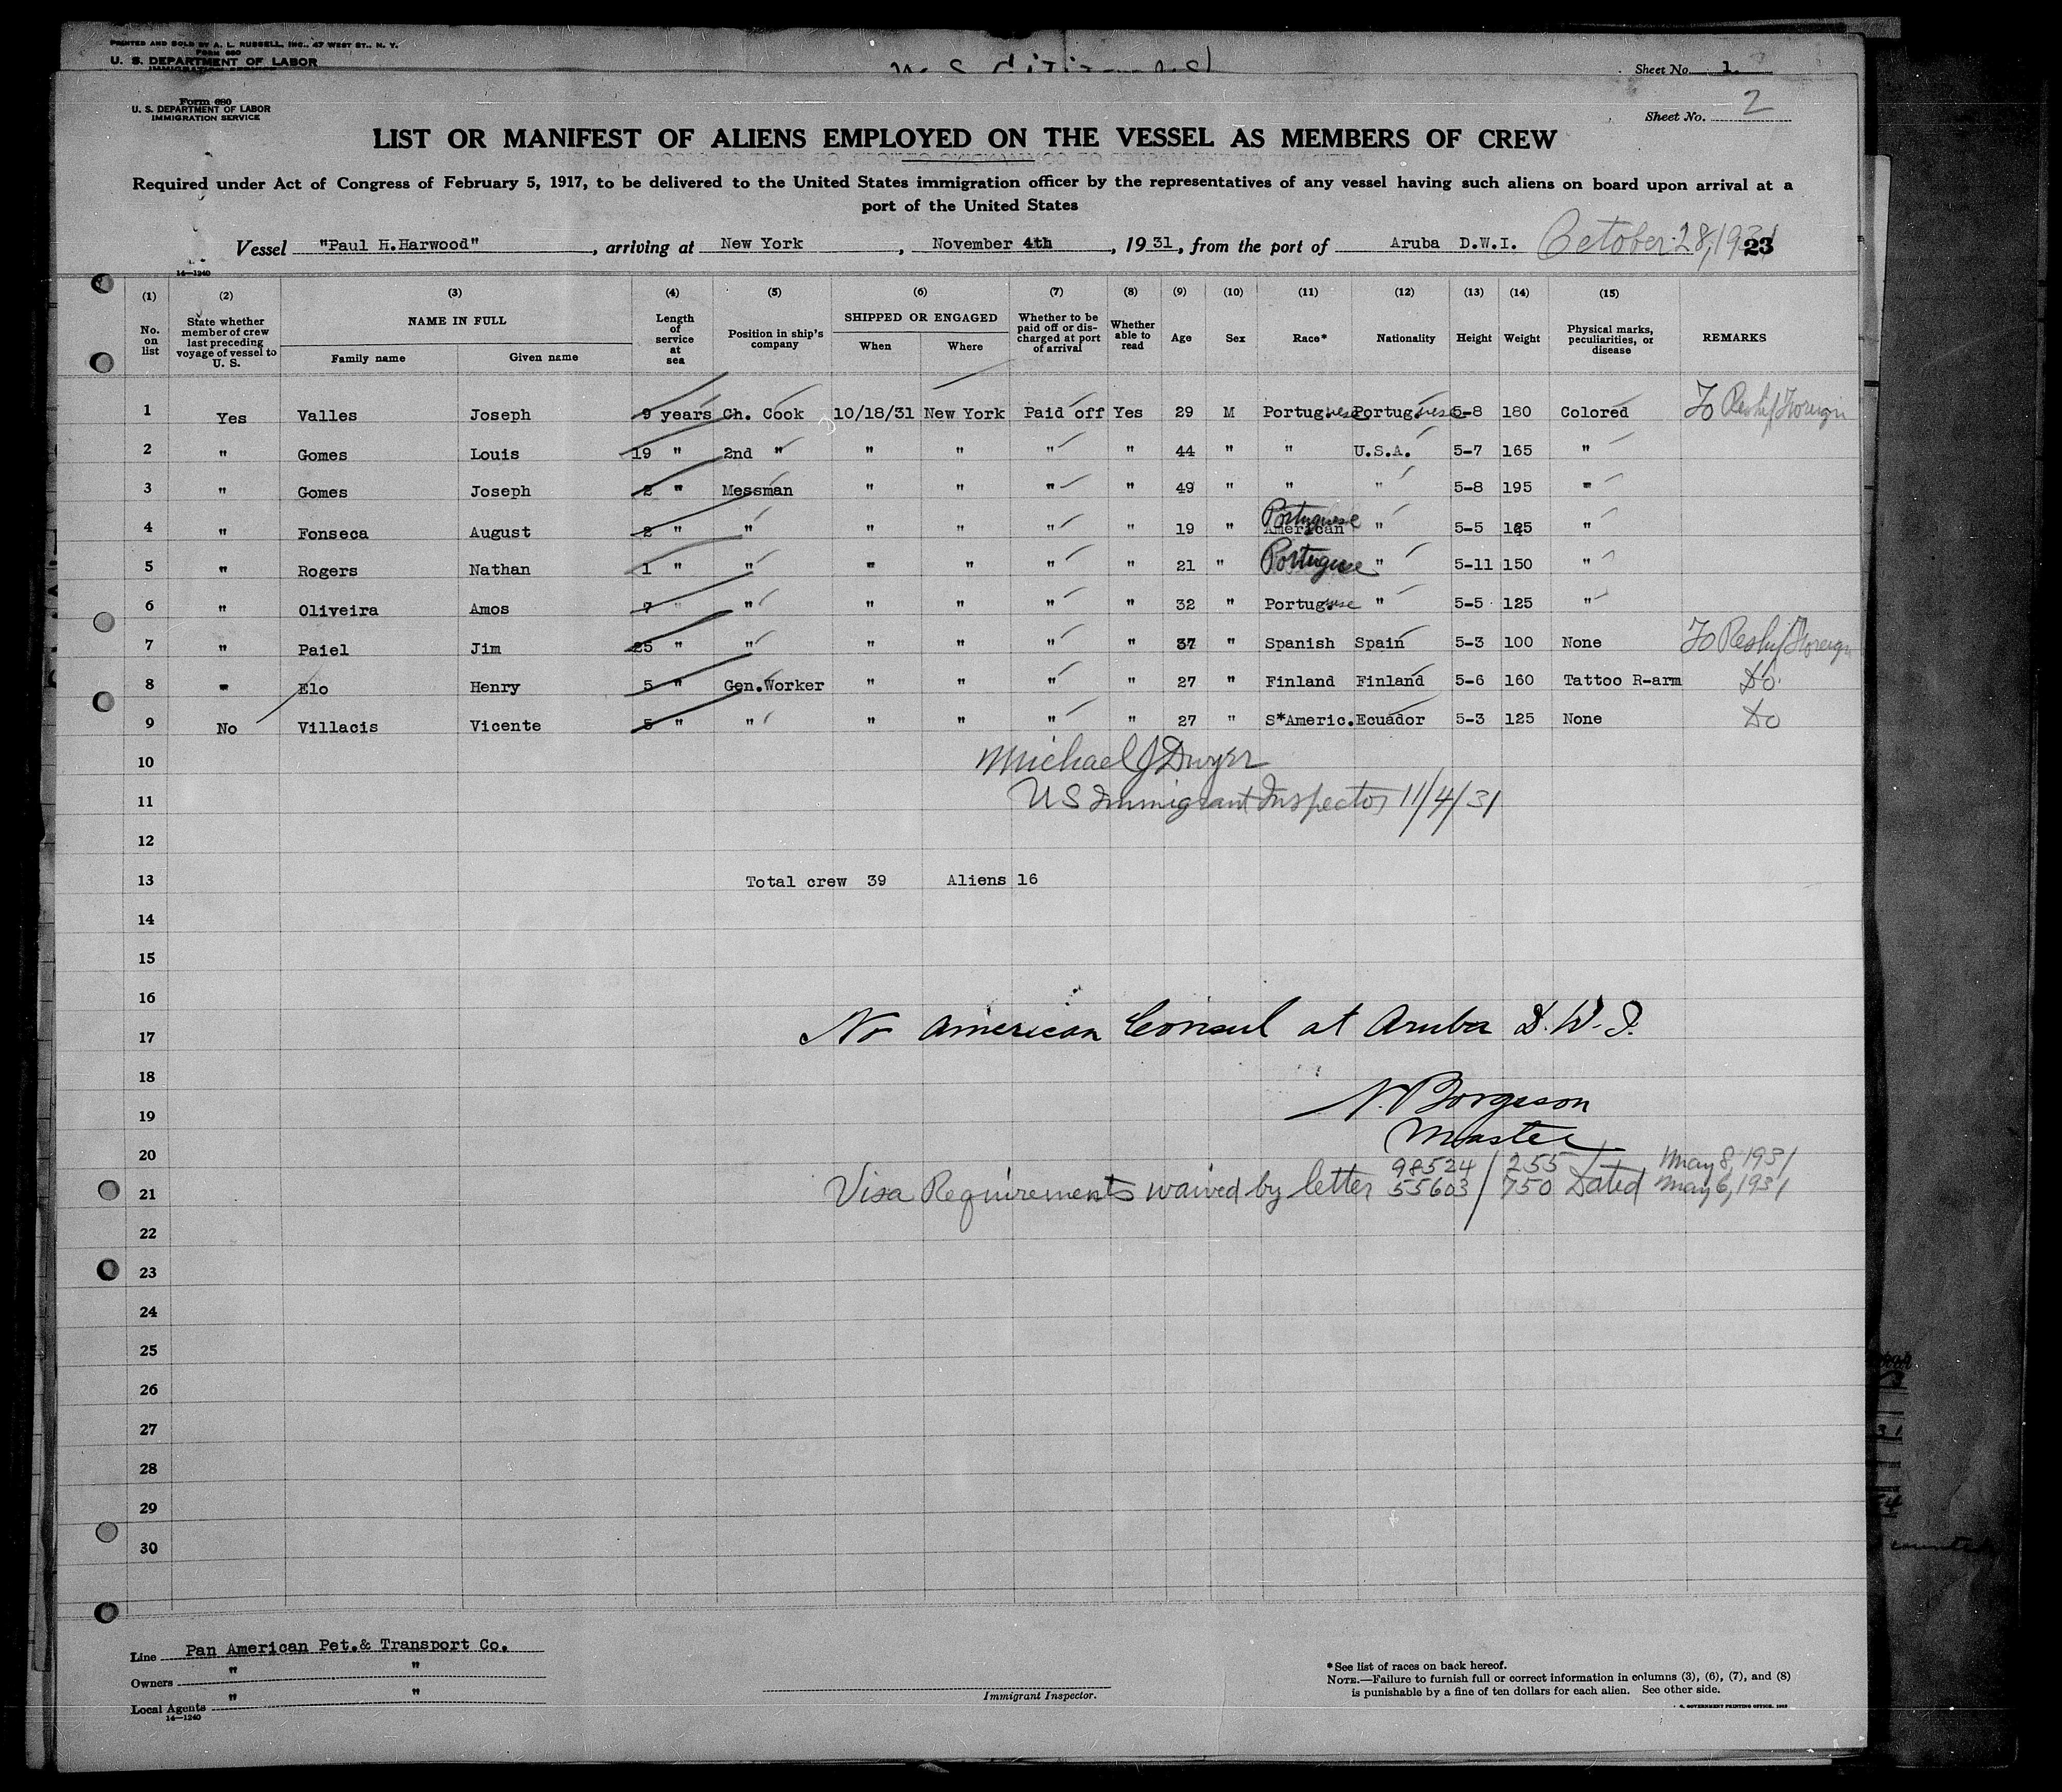 PRINTED AND SOLD BY A. L. RUSSELL, INC., 47 WEST ST., N. Y.
FORM 680
U. S. DEPARTMENT OF LABOR
Sheet No. 1.
Form 680
U. S. DEPARTMENT OF LABOR
IMMIGRATION SERVICE
Sheet No. 2
LIST OR MANIFEST OF ALIENS EMPLOYED ON THE VESSEL AS MEMBERS OF CREW
Required under Act of Congress of February 5, 1917, to be delivered to the United States immigration officer by the representatives of any vessel having such aliens on board upon arrival at a
port of the United States
Vessel "Paul H.Harwood", arriving at New York, November 4th, 1931, from the port of Aruba D.W.I. October 28, 1931 23
14—1240
(1) (2) (3) (4) (5) (6) (7) (8) (9) (10) (11) (12) (13) (14) (15)
No. on list State whether member of crew last preceding voyage of vessel to U. S. NAME IN FULL Family name Given name Length of service at sea Position in ship's company SHIPPED OR ENGAGED When Where Whether to be paid off or discharged at port of arrival Whether able to read Age Sex Race* Nationality Height Weight Physical marks, peculiarities, or disease REMARKS
1 Yes Valles Joseph 9 years Ch. Cook 10/18/31 New York Paid off Yes 29 M Portuguese Portuguese 5-8 180 Colored To Reship Foreign
2 " Gomes Louis 19 " 2nd " " " " " 44 " " U.S.A. 5-7 165 "
3 " Gomes Joseph 2 " Messman " " " " 49 " " " 5-8 195 "
4 " Fonseca August 2 " " " " " " 19 " American Portuguese " 5-5 125 "
5 " Rogers Nathan 1 " " " " " " 21 " Portuguese " 5-11 150 "
6 " Oliveira Amos 7 " " " " " " 32 " Portuguese " 5-5 125 "
7 " Paiel Jim 25 " " " " " " 37 " Spanish Spain 5-3 100 None To Reship Foreign
8 " Elo Henry 5 " Gen.Worker " " " " 27 " Finland Finland 5-6 160 Tattoo R-arm Do
9 No Villacis Vicente 5 " " " " " " 27 " S*Americ. Ecuador 5-3 125 None Do
10 Michael J Dwyer
11 US Immigrant Inspector 11/4/31
12
13 Total crew 39 Aliens 16
14
15
16
17 No American Consul at Aruba D.W.I.
18
19 N. Borgeson
Master
20 98524 / 255 May 8, 1931
21 Visa Requirements waived by letter 55603 / 750 Dated May 6, 1931
22
23
24
25
26
27
28
29
30
Line Pan American Pet.& Transport Co.
Owners " "
Local Agents " "
14—1240
Immigrant Inspector.
*See list of races on back hereof.
NOTE.—Failure to furnish full or correct information in columns (3), (6), (7), and (8)
is punishable by a fine of ten dollars for each alien. See other side.